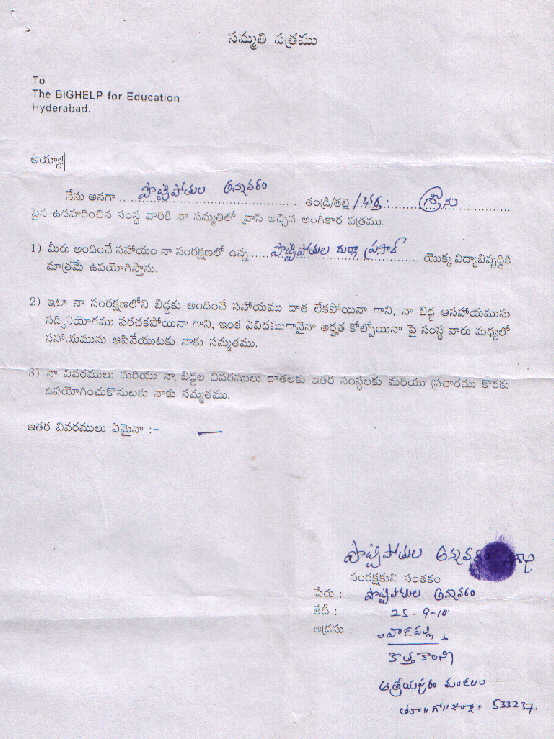 సమ్మతి పత్రము
To
The BIGHELP for Education
Hyderabad.
అయ్యా
నేను అనగా .... పొట్టిపోతుల అన్నవరం .... తండ్రి/తల్లి/భర్త : .... శ్రీను
పైన ఉదహరించిన సంస్థ వారికి నా సమ్మతితో వ్రాసి ఇచ్చిన అంగీకార పత్రము.
1) మీరు అందించే సహాయం నా సంరక్షణలో ఉన్న .... పొట్టిపోతుల దుర్గా ప్రసాద్ .... యొక్క విద్యాభివృద్ధికి
మాత్రమే ఉపయోగిస్తాను.
2) ఇలా నా సంరక్షణలోని బిడ్డకు అందించే సహాయము దాత లేకపోయినా గాని, నా బిడ్డ ఆసహాయమును
సద్వినియోగము పరచకపోయినా గాని, ఇంకా ఏవిధముగానైనా అర్హత కోల్పోయినా పై సంస్థ వారు మధ్యలో
సహాయమును ఆపివేయుటకు నాకు సమ్మతము.
3) నా వివరములు మరియు నా బిడ్డల వివరములు దాతలకు ఇతర సంస్థలకు మరియు ప్రచారము కొరకు
ఉపయోగించుకొనుటకు నాకు సమ్మతము.
ఇతర వివరములు ఏమైనా :- —
పొట్టిపోతుల అన్నవరం
సంరక్షకుని సంతకం
పేరు : పొట్టిపోతుల అన్నవరం
తేది : 25-9-10
అడ్రసు :
కొత్త కాలనీ
ఆత్రేయపురం మండలం